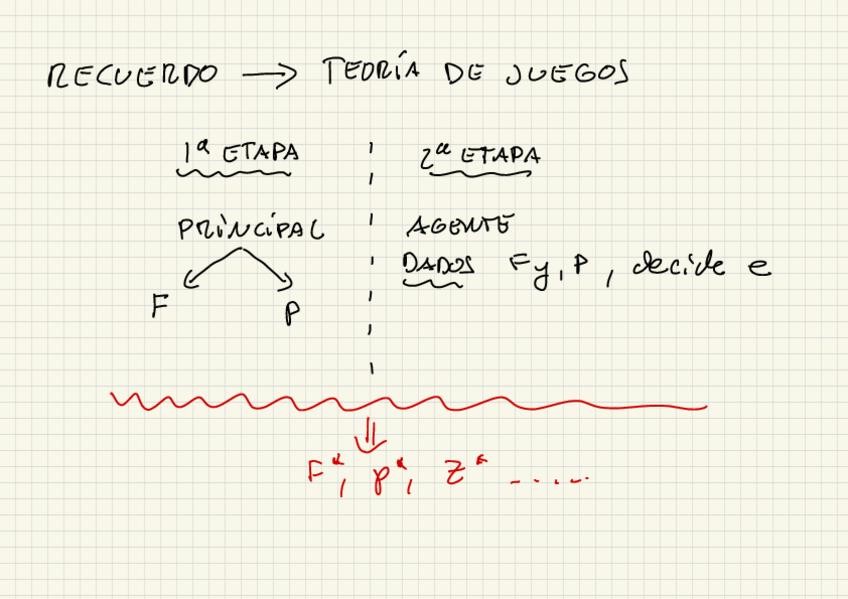 RECUERDO → TEORÍA DE JUEGOS
1ª ETAPA
2ª ETAPA
PRINCIPAL
AGENTE
DADOS F y, P, decide e
F
P
⇓
F*, P*, Z* .....